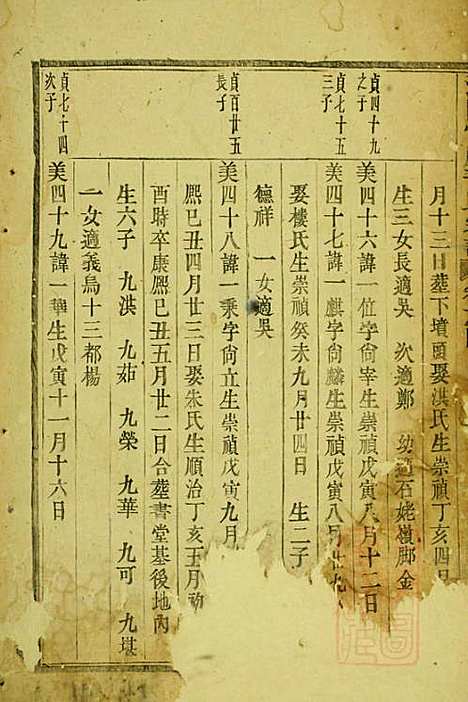 月十三日葬下墳頭娶洪氏生崇禎丁亥四月
生三女長適吳 次適鄭 幼適石姥嶺脚金
貞四十九之子
美四十六諱一位字尙宰生崇禎戊寅八月十二日
貞七十五三子
美四十七諱一麒字尙麟生崇禎戊寅八月廿九
娶樓氏生崇禎癸未九月廿四日 生二子
德祥 一女適吳
貞百廿五長子
美四十八諱一乘字尙立生崇禎戊寅九月
熙己丑四月廿三日娶朱氏生順治丁亥五月初
酉時卒康熙己丑五月廿二日合葬書堂基後地內
生六子 九洪 九茹 九榮 九華 九可 九堪
一女適義烏十三都楊
貞七十四次子
美四十九諱一華生戊寅十一月十六日